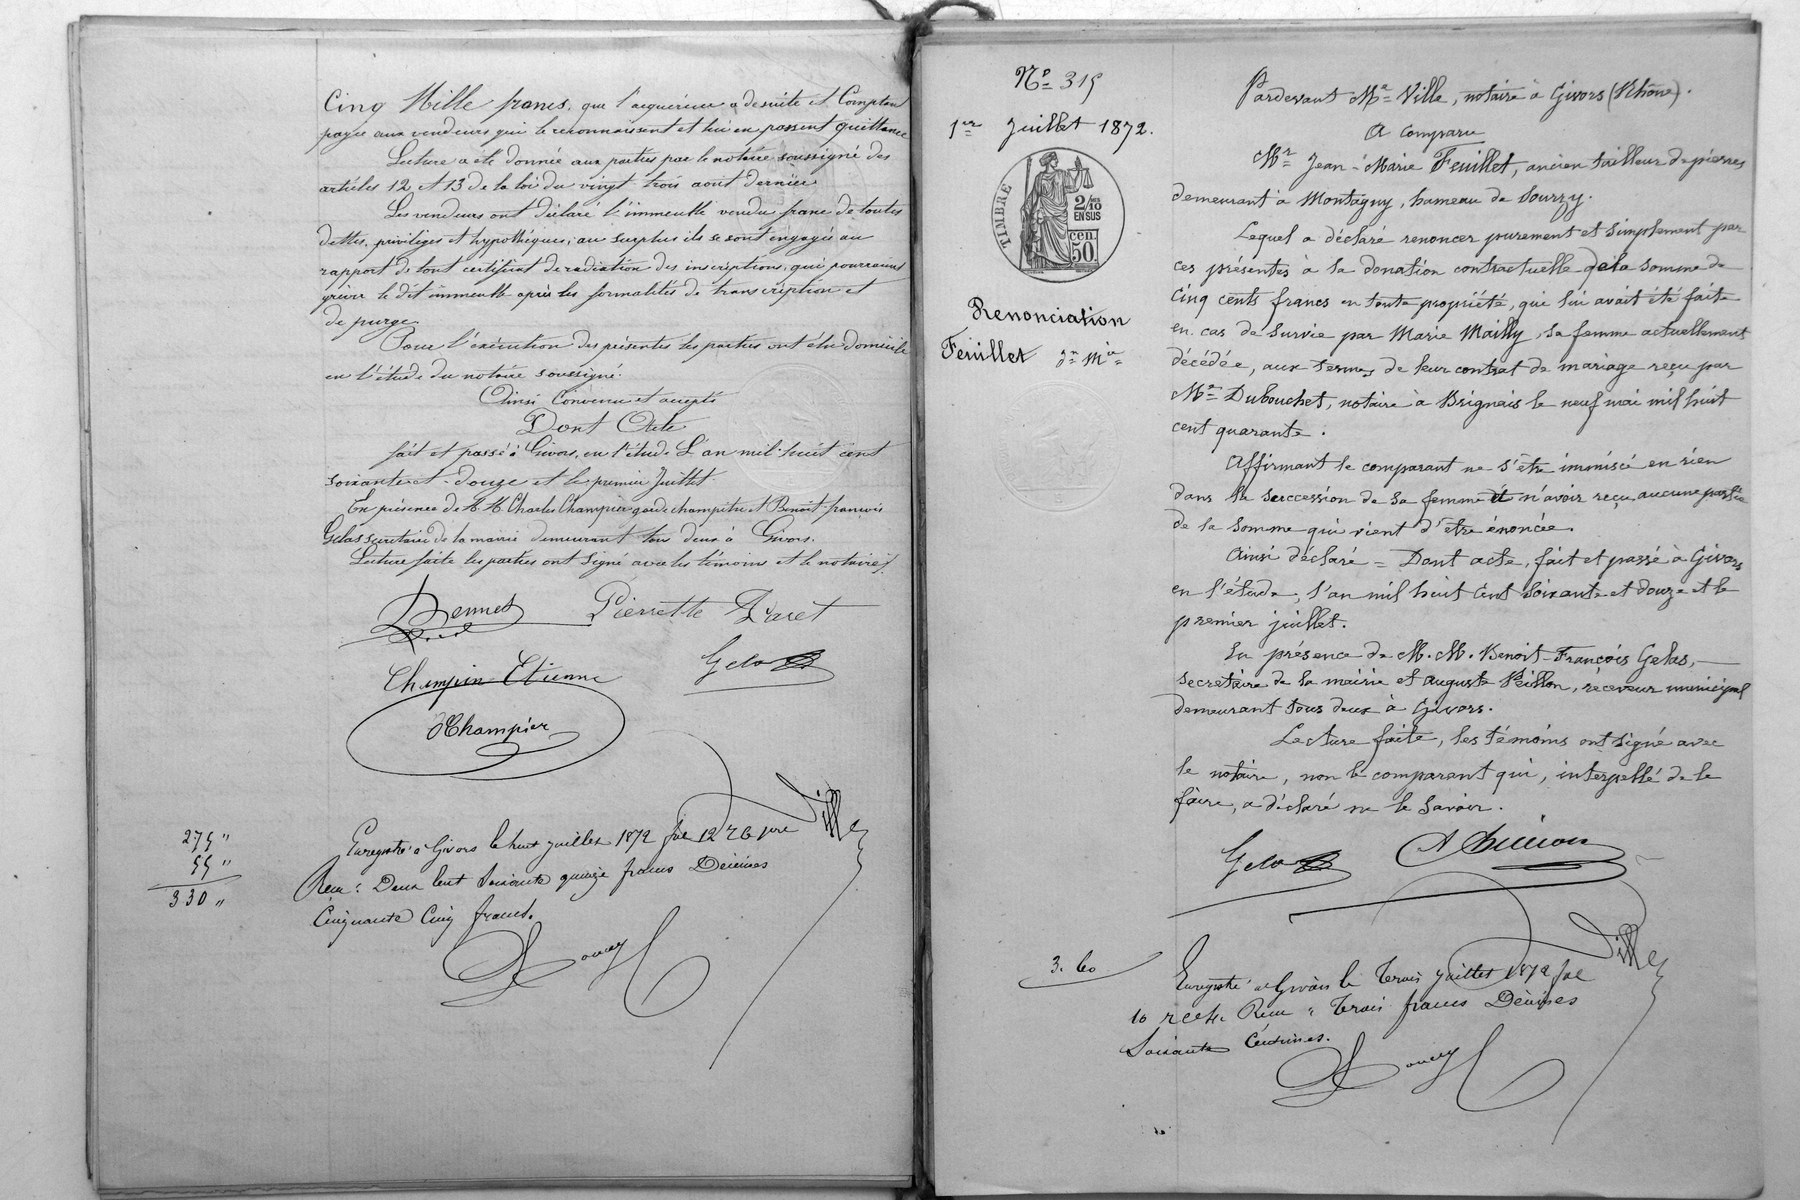 Cinq Mille francs, que l'acquéreur a de suite et Comptant
payée aux vendeurs qui le reconnaissent et lui en passent quittance
Lecture a été donnée aux parties par le notaire soussigné des
articles 12 et 13 de la loi du vingt trois août dernier
Les vendeurs ont déclaré l'immeuble vendu franc de toutes
dettes, privilèges et hypothèques, au surplus ils se sont engagés au
rapport de tout certificat de radiation des inscriptions, qui pourraient
grever le dit immeuble après les formalités de transcription et
de purge
Pour l'exécution des présentes les parties ont élu domicile
en l'étude du notaire soussigné.
Ainsi Convenu et accepté
Dont Acte
fait et passé à Givors, en l'étude L'an mil-huit cent
soixante et-douze et le premier Juillet
En présence de M.M. Charles Champier garde champêtre et Benoît-françois
Gelas secrétaire de la mairie demeurant tous deux à Givors.
Lecture faite les parties ont signé avec les témoins et le notaire
Pierrette
Gelas
Champin Etienne
Champier
Ville
275 "
55 "
330 "
Enregistré à Givors le huit juillet 1872 fol 12
Reçu : Deux Cent Soixante quinze francs Décimes
Cinquante Cinq francs.
Nº 315
1er Juillet 1872.
TIMBRE
2/10
EN SUS
cen.
50.
Renonciation
Feuillet Jn Mie
Pardevant Me Ville, notaire à Givors (Rhône).
A comparu
Mr Jean-Marie Feuillet, ancien tailleur de pierres
demeurant à Montagny, hameau de Sourzy.
Lequel a déclaré renoncer purement et simplement par
ces présentes à la donation contractuelle de la somme de
Cinq cents francs en toute propriété, qui lui avait été faite
en cas de survie par Marie Mailly, sa femme actuellement
décédée, aux termes de leur contrat de mariage reçu par
Me Dubouchet, notaire à Brignais le neuf mai mil huit
cent quarante.
Affirmant le comparant ne s'être immiscé en rien
dans la succession de sa femme et n'avoir reçu aucune partie
de la somme qui vient d'être énoncée.
Ainsi déclaré = Dont acte, fait et passé à Givors
en l'étude, l'an mil huit Cent Soixante et douze et le
premier juillet.
En présence de M.M. Benoit-François Gelas,
secrétaire de la mairie et auguste Peillon, réceveur municipal
demeurant tous deux à Givors.
Lecture faite, les témoins ont signé avec
le notaire, non le comparant qui, interpellé de le
faire, a déclaré ne le Savoir.
Gelas
Ville
3. 60
Enregistré à Givors le Trois juillet 1872 fol
10 Reçu : Trois francs Décimes
Soixante Centimes.